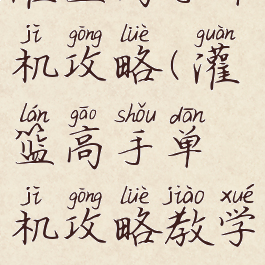 jī gōng lüè guàn
机攻略(灌
lán gāo shǒu dān
篮高手单
jī gōng lüè jiào xué
机攻略教学